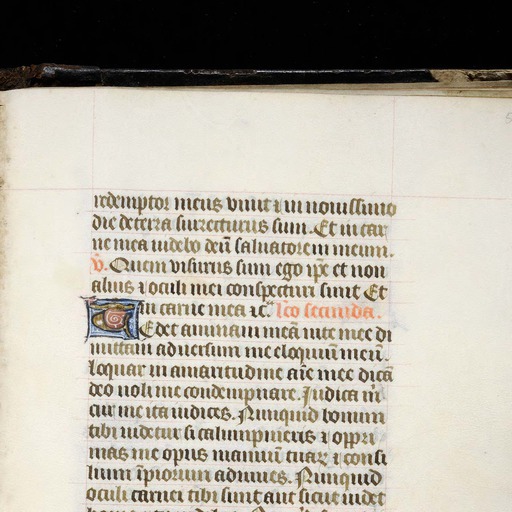 redemptor meus viuit ⁊ in nouissimo
die de terra surrecturus sum. Et in car
ne mea videbo deū saluatorem meum.
v̄. Quem visurus sum ego ip̄e et non
alius ⁊ oculi mei conspecturi sunt Et
in carne mea ⁊c. lc̄o secunda.
Tedet animam meā vite mee di
mittam aduersum me eloquiū meū.
loquar in amaritudine aīe mee dicā
deo noli me condempnare. Iudica m̄
cur me ita iudices. Nunquid bonum
tibi videtur si calumpnieris ⁊ oppri
mas me opus manuū tuaꝝ ⁊ consi
lium īpiorum adiuues. Nunquid
oculi carnei tibi sunt aut sicut videt